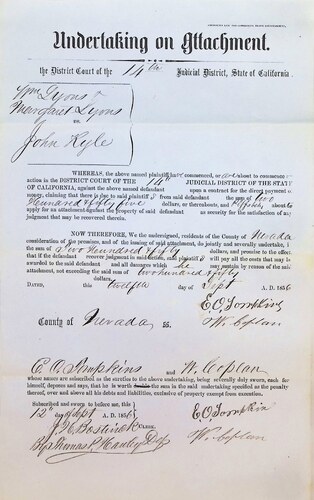 Undertaking on Attachment.
the District Court of the 14th Judicial District, State of California
Wm Lyons &
Margaret Lyons
vs.
John Kyle
WHEREAS, the above named plaintiff have commenced, or are about to commence
action in the DISTRICT COURT OF THE 14th JUDICIAL DISTRICT OF THE STATE
OF CALIFORNIA, against the above named defendant upon a contract for the direct payment of
money, claiming that there is due to said plaintiff s from said defendant the sum of two
Hundred & fifty five dollars, or thereabouts, and about to
apply for an attachment against the property of said defendant as security for the satisfaction of any
judgment that may be recovered therein.
NOW THEREFORE, We the undersigned, residents of the County of Nevada
consideration of the premises, and of the issuing of said attachment, do jointly and severally undertake, in
the sum of Two Hundred & fifty dollars, and promise to the effect
that if the defendant recover judgment in said action, said plaintiff s will pay all the costs that may be
awarded to the said defendant and all damages which he may sustain by reason of the said
attachment, not exceeding the said sum of two hundred & fifty dollars.
DATED, this twelfth day of Sept A. D. 1856
E O Tompkins
W. Coplan
County of Nevada SS.
E. O. Tompkins and W. Coplan
whose names are subscribed as the sureties to the above undertaking, being severally duly sworn, each for
himself, deposes and says, that he is worth the sum in the said undertaking specified as the penalty
thereof, over and above all his debts and liabilities, exclusive of property exempt from execution.
Subscribed and sworn to before me, this
12th day of Sept A. D. 1856 E O Tompkins
J. H. Bostwick CLERK. W. Coplan
By Thomas P. Hawley Dep